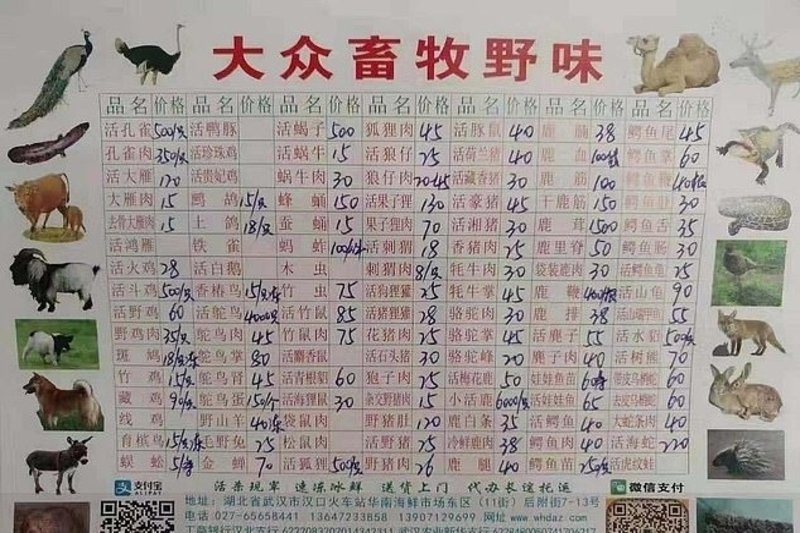 大众畜牧野味
品名 价格 品名 价格 品名 价格 品名 价格 品名 价格 品名 价格 品名 价格
活孔雀 500/只 活鸭豚 活蝎子 500 狐狸肉 45 活豚鼠 40 鹿腩 38 鳄鱼尾 45
孔雀肉 350/只 活珍珠鸡 活蜗牛 15 活狼仔 25 活荷兰猪 40 鹿血 鳄鱼掌 60
活大雁 120 活贵妃鸡 蜗牛肉 30 狼仔肉 20-45 活藏香猪 30 鹿筋 100 鳄鱼鞭
大雁肉 15 鹧鸪 15/只 蜂蛹 150 活果子狸 130 活豪猪 45 干鹿筋 150 鳄鱼肚 30
去骨大雁肉 15 土鸽 18/只 蚕蛹 15 果子狸肉 70 活湘猪 30 鹿茸 1500 鳄鱼舌 35
活鸿雁 铁雀 蚂蚱 活刺猬 18 香猪肉 25 鹿里脊 50 鳄鱼肠 30
活火鸡 28 活白鹅 木虫 刺猬肉 8/只 牦牛肉 30 袋装鹿肉 30 活鳄鱼龟 25
活斗鸡 500/只 香椿鸟 竹虫 75 活狗狸獾 25 牦牛掌 45 鹿鞭 活山龟 90
活野鸡 60 活鸵鸟 4000/只 活竹鼠 85 活猪狸獾 28 骆驼肉 30 鹿排 38 55
野鸡肉 35/只 鸵鸟肉 45 竹鼠肉 75 花猪肉 25 骆驼掌 45 活麂子 55 活水貂 500/只
斑鸠 鸵鸟掌 80 活麝香鼠 活石头猪 30 骆驼峰 20 麂子肉 40 活树熊 70
竹鸡 15/只 鸵鸟肾 45 活青根貂 60 狍子肉 25 活梅花鹿 50 娃娃鱼苗 带皮乌梢蛇 60
藏鸡 90/只 鸵鸟蛋 150/个 活海狸鼠 30 杂交野猪肉 15 小活鹿 6000/只 活娃娃鱼 65 去皮乌梢蛇 60
线鸡 野山羊 袋鼠肉 野猪肚 120 鹿白条 35 活鳄鱼 40 大蛇条肉 40
育槟鸟 毛野兔 25 松鼠肉 活野猪 25 冷鲜鹿肉 38 鳄鱼肉 40 活海蛇 220
蜈蚣 金蝉 70 活狐狸 500/只 野猪肉 26 鹿腿 40 鳄鱼苗 活虎纹蛙
支付宝 ALIPAY 活杀现宰 速冻冰鲜 送货上门 代办长途托运 微信支付
地址：湖北省武汉市汉口火车站华南海鲜市场东区（11街）后附街7-13号
电话 027-65658441 13647233858 13907129699 网址 www.whdaz.com